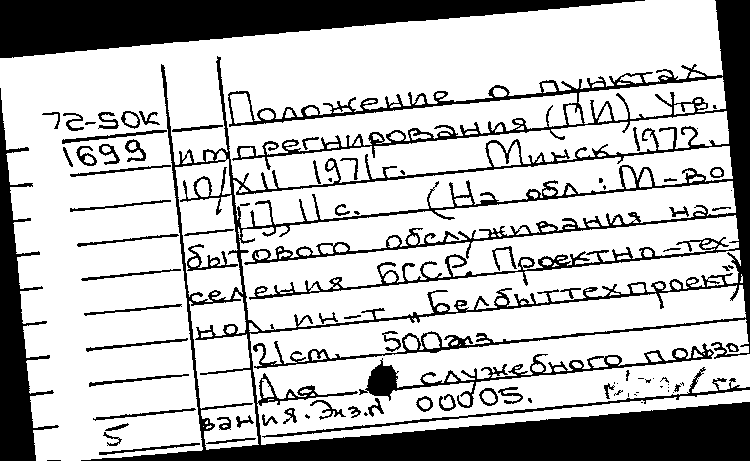 72-50к
1699
Положение о пунктах
импрегнирования (ПИ). Утв.
10/XII 1971г. Минск, 1972.
[1], 11 с. (На обл.: М-во
бытового обслуживания на-
селения БССР. Проектно-тех-
нол. ин-т „Белбыттехпроект")
21 см. 500 экз.
Для служебного пользо-
вания. Экз. N 00005.
5